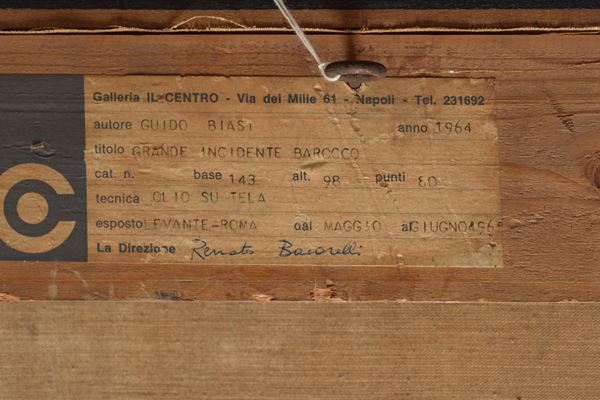 Galleria IL CENTRO - Via dei Mille 61 - Napoli - Tel. 231692
autore GUIDO BIASI anno 1964
titolo GRANDE INCIDENTE BAROCCO
cat. n. base 143 alt. 98 punti 80
tecnica OLIO SU TELA
esposto LEVANTE-ROMA dal MAGGIO al GIUGNO 196
La Direzione Renato Bacarelli